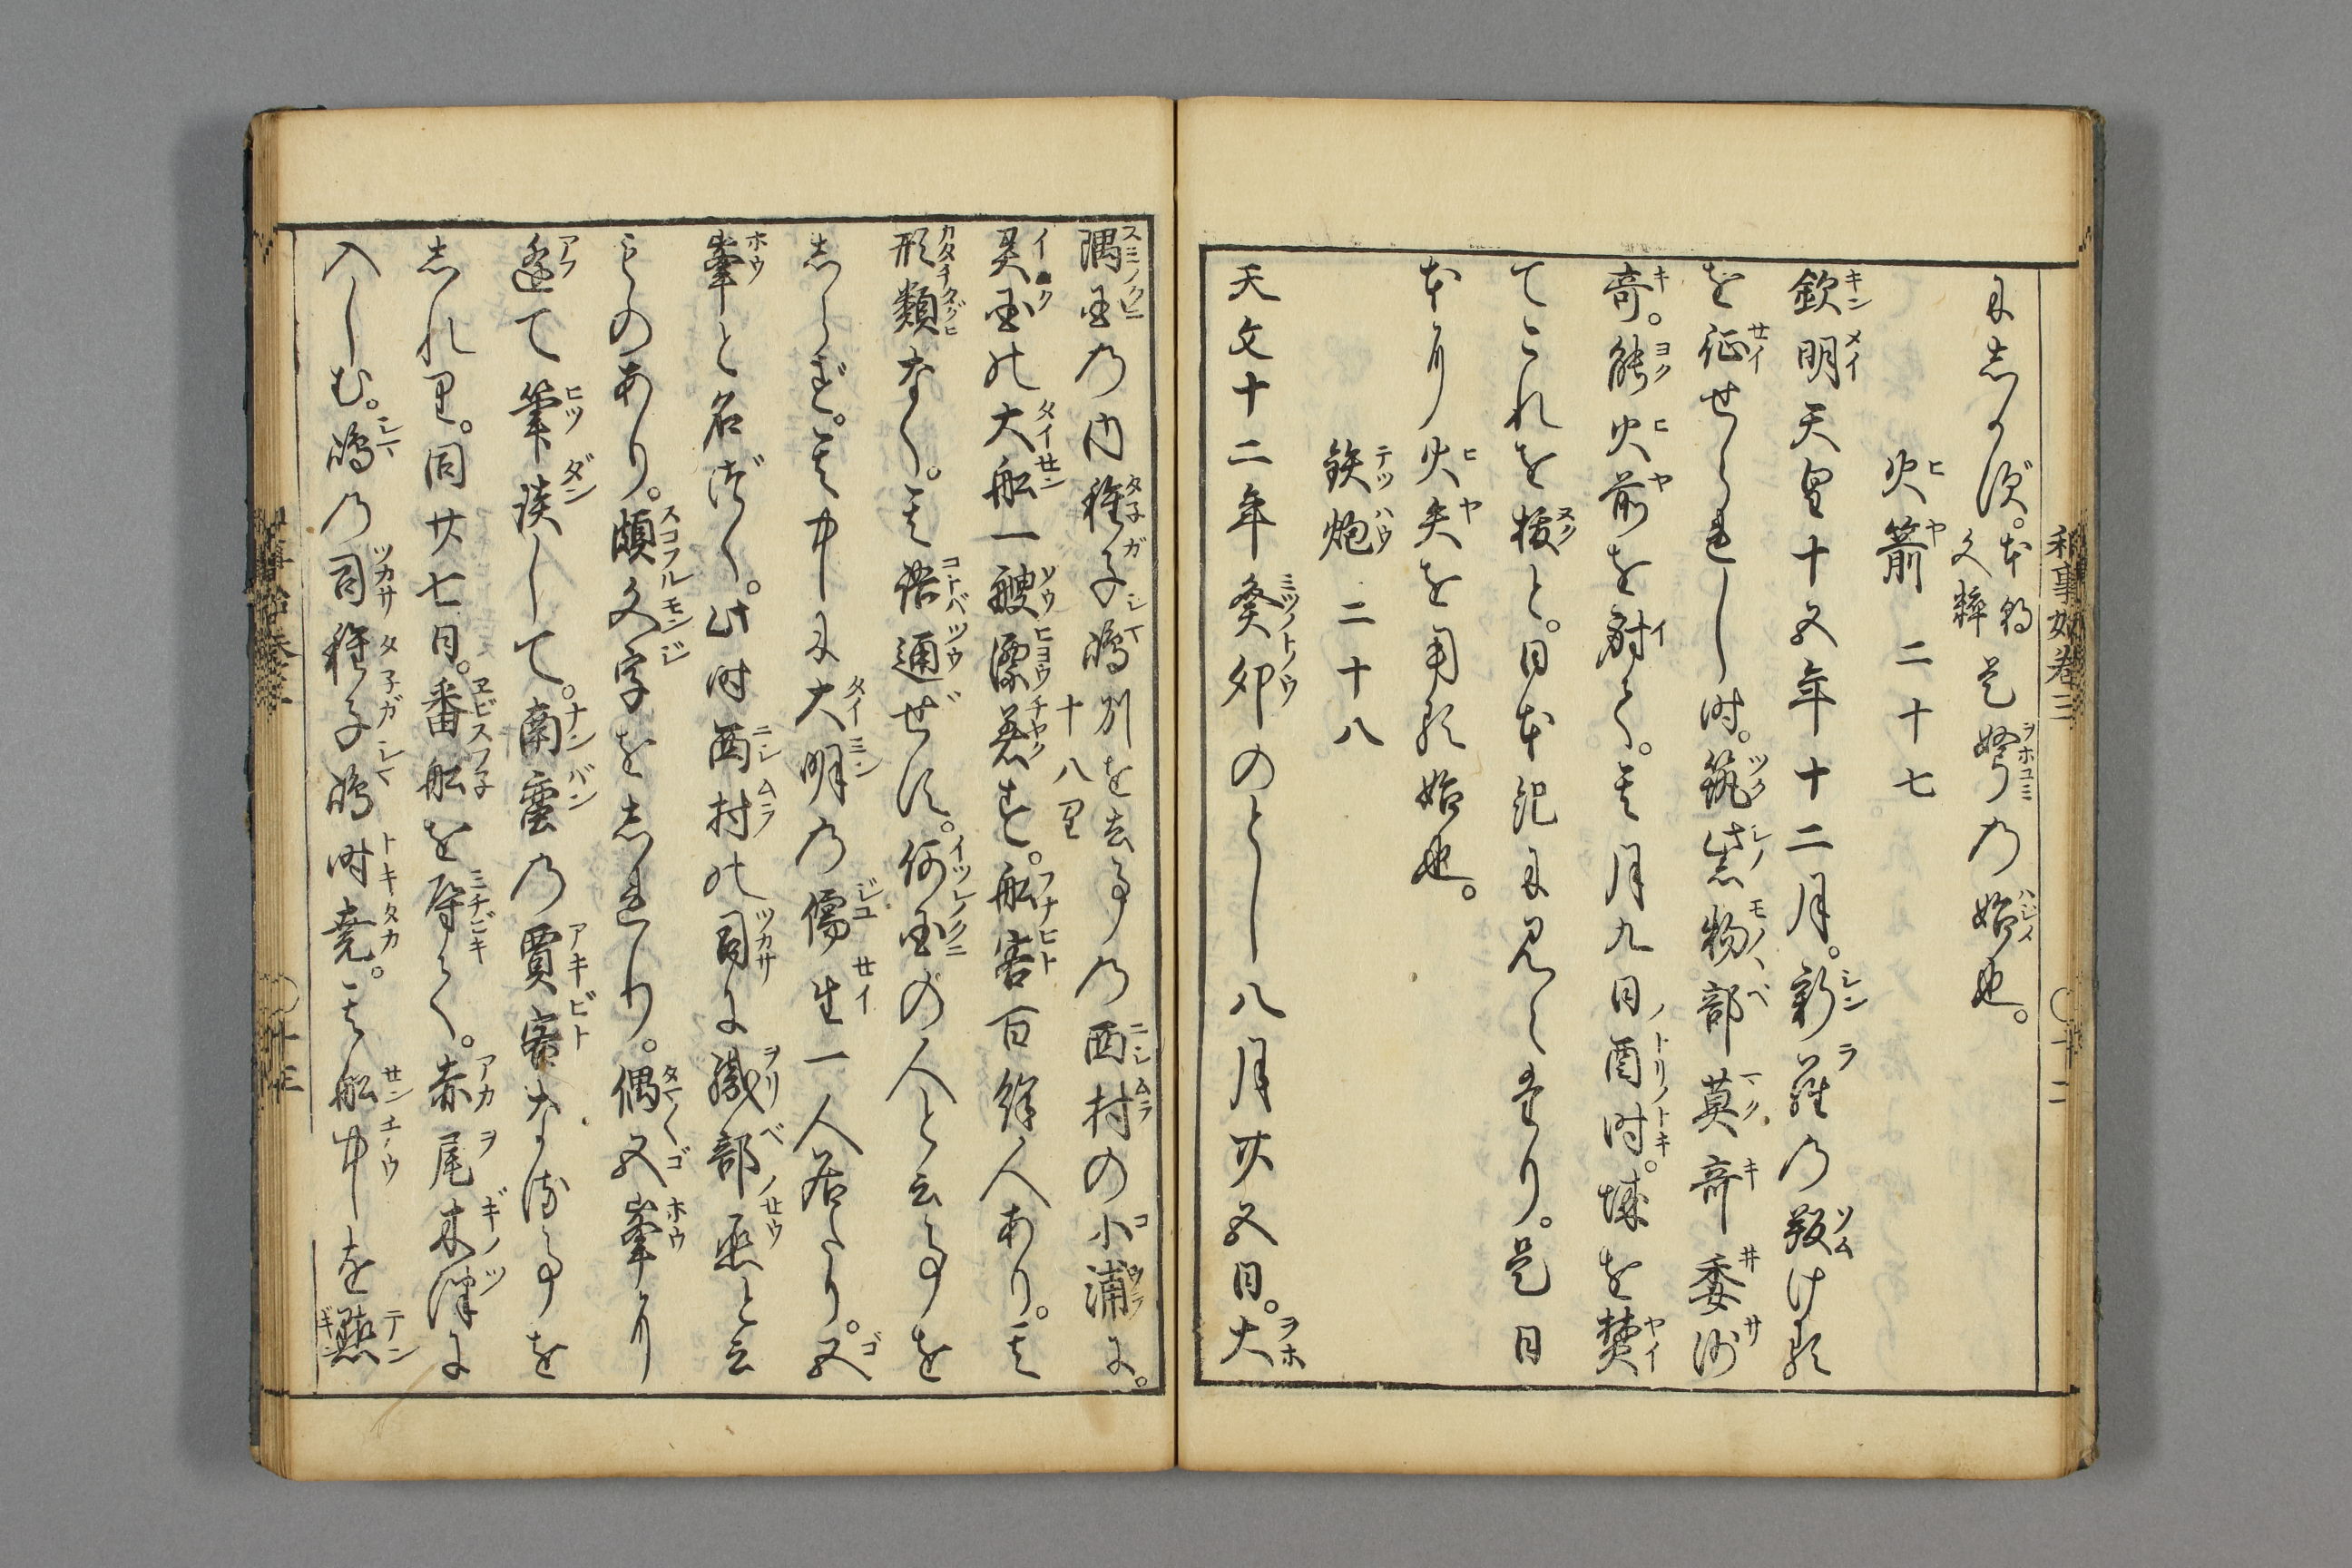 和事始卷三 〇十二
にしるす。本朝文粹 是弩の始也。
火箭 二十七
欽明天皇十五年十二月。新羅の叛ける
を征せられし時。筑紫物部莫奇委沙
奇。能火箭を射る。其月九日酉時。城を焚
てこれを拔と。日本記に見えたり。是日
本より火矢を用る始也。
鉄炮 二十八
天文十二年癸卯のとし八月廿五日。大
隅国の内種子嶋別を去事十八里の西村の小浦に。
異国の大船一艘漂着す。船客百餘人あり。其
形類なく。其語通ぜず。何国の人と云事を
しらず。其中に大明の儒生一人居たり。五
峯と名づく。此時西村の司に織部丞と云
ものあり。頗文字をしれり。偶五峯に
逢て筆談して。南蛮の賈客なる事を
しれり。同廿七日。番船を導く。赤尾木津に
入しむ。嶋の司種子嶋時堯。其船中を點